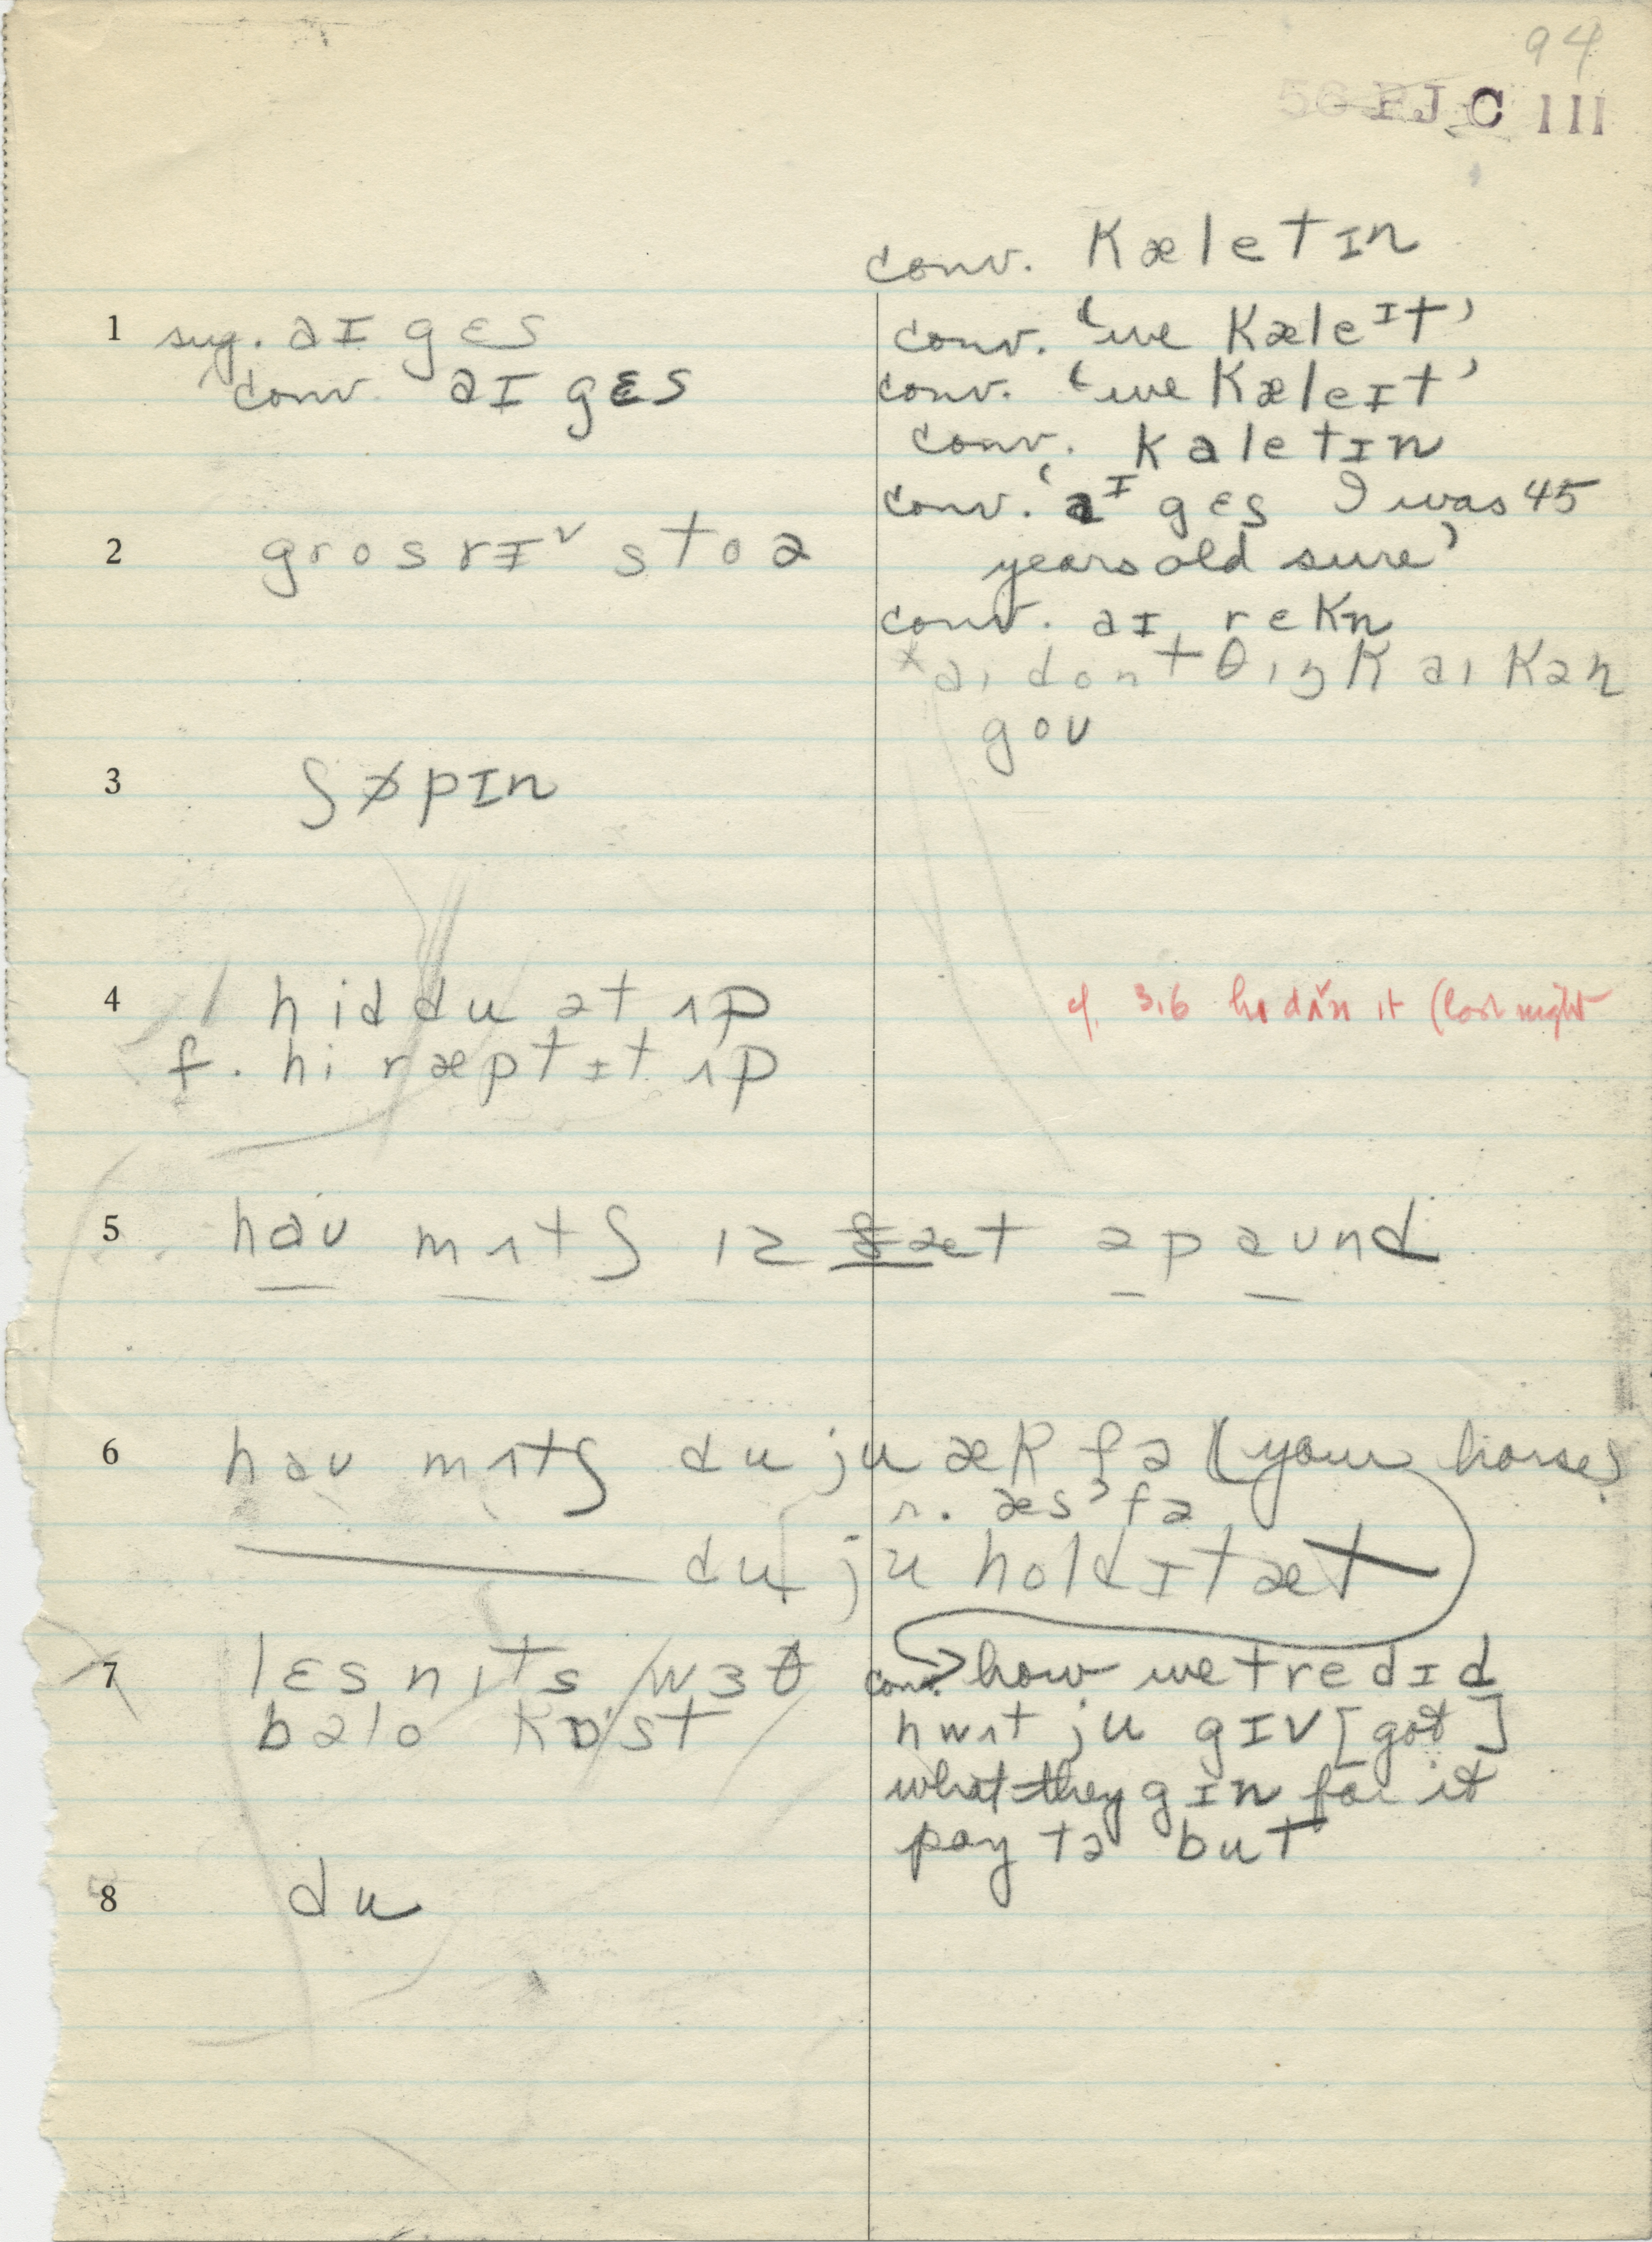 94
C III
conv. kæletɪn
conv. 'we kæleɪt'
conv. 'we kæleɪt'
conv. kaletɪn
conv. 'aɪ gɛs I was 45
years old sure'
conv. aɪ rekn
*aɪ dont θɪŋk aɪ kən
goʊ
1 sug. aɪ gɛs
conv. aɪ gɛs
2 grosrɪ˅ stoə
3 ʃɒpɪn
4 hɪd du ət ʌp
f. hi ræpt ɪt ʌp
cf. 3.6 hi dʌ̌n it (last night
5 haʊ mʌtʃ ɪz ðæt ə paʊnd
6 haʊ mʌtʃ du ju æk fə (your horses
r. æsˀ fə
du ju hold ɪt æt
7 lɛs n ɪts wɜθ
bəlo kɒst
conv. how we tredɪd
hwʌt ju gɪv [got]
what they gɪn for it
pay tə but
8 du